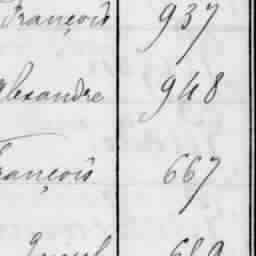 François 937
Alexandre 948
François 667